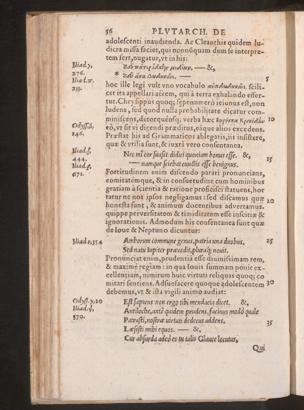 56 PLVTARCH. DE
adolescenti inaudienda. Ac Cleanthis quidem lu-
dicra missa faciet, qui nonnũquam dum se interpre-
tem fert, nugatur, vt in his:
Iliad.γ,
276.
Iliad.π,
233.
hoc ille legi vult vno vocabulo scili-
cet ita appellari aërem, qui à terra exhalando effer-
tur. Chrysippus quoq; sepenumero ieiunus est, non
ludens, sed quod nulla probabilitate dicatur com-
miniscens, detorquensq; verba
vt sit vi dicendi præditus, eiq; alios excedens.
Præstat his ad Grammaticos ablegatis, iis insistere,
quæ & vtilia sunt, & iuxta vero consentanea.
146.
Iliad.ζ,
444.
Nec mî cor suasit didici quoniam bonus esse. &,
— namque sciebat cunctis esse benignus.
671.
Fortitudinem enim discendo parari pronuncians,
comitatémque, & in consuetudine cum hominibus
gratiam à scientia & ratione proficisci statuens, hor
tatur ne nos ipsos negligamus: sed discamus quæ
honesta sunt, & animum docentibus aduertamus.
quippe peruersitatem & timiditatem esse inscitiæ &
ignorationis. Admodum his consentanea sunt quæ
de Ioue & Neptuno dicuntur:
Amborum commune genus, patria vna duobus.
Sed natu Iupiter præcedit, pluráq; nouit.
Pronunciat enim, prudentia esse diuinissimam rem,
& maximè regiam: in qua Iouis summam ponit ex-
cellentiam, nimirum huic virtuti reliquas quoq; co-
mitari sentiens. Adsuefacere quoque adolescentem
debemus, vt & ista vigili animo audiat:
Est sapiens non ergo sibi mendacia dicet. &,
Iliad.ψ,
570.
Antiloche, ante quidem prudens, facinus modò quale
Patrasti, nostræ virtuti dedecus addens.
Læsisti mihi equos. — &,
Cur absurda adeò es tu talis Glauce locutus,
Qui
5
15
20
25
30
35